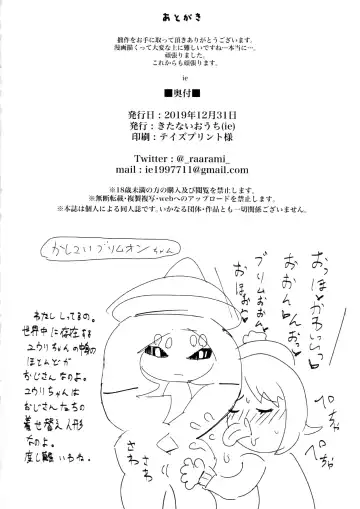 あとがき
拙作をお手に取って頂きありがとうございます。
漫画描くって大変な上に難しいですね…本当に…。
頑張りました。
これからも頑張ります。
ie
■奥付■
発行日：2019年12月31日
発行：きたないおうち(ie)
印刷：テイズプリント様
Twitter：@_raarami_
mail：ie1997711@gmail.com
※18歳未満の方の購入及び閲覧を禁止します。
※無断転載・複製複写・webへのアップロードを禁止します。
※本誌は個人による同人誌です。いかなる団体・作品とも一切関係ございません。
かしこいブリムオンちゃん
おっほ♡かわいいっ♡
おおん♡んおっ♡
ブリムおおん♡
おほお♡
わたし しってるの。
世界中に存在する
ユウリちゃんの中身の
ほとんどが
おじさんなのよ。
ユウリちゃんは
おじさんたちの
着せ替え人形
なのよ。
度し難いわね。
さわ
さわ
ペろ♡
ペろ♡